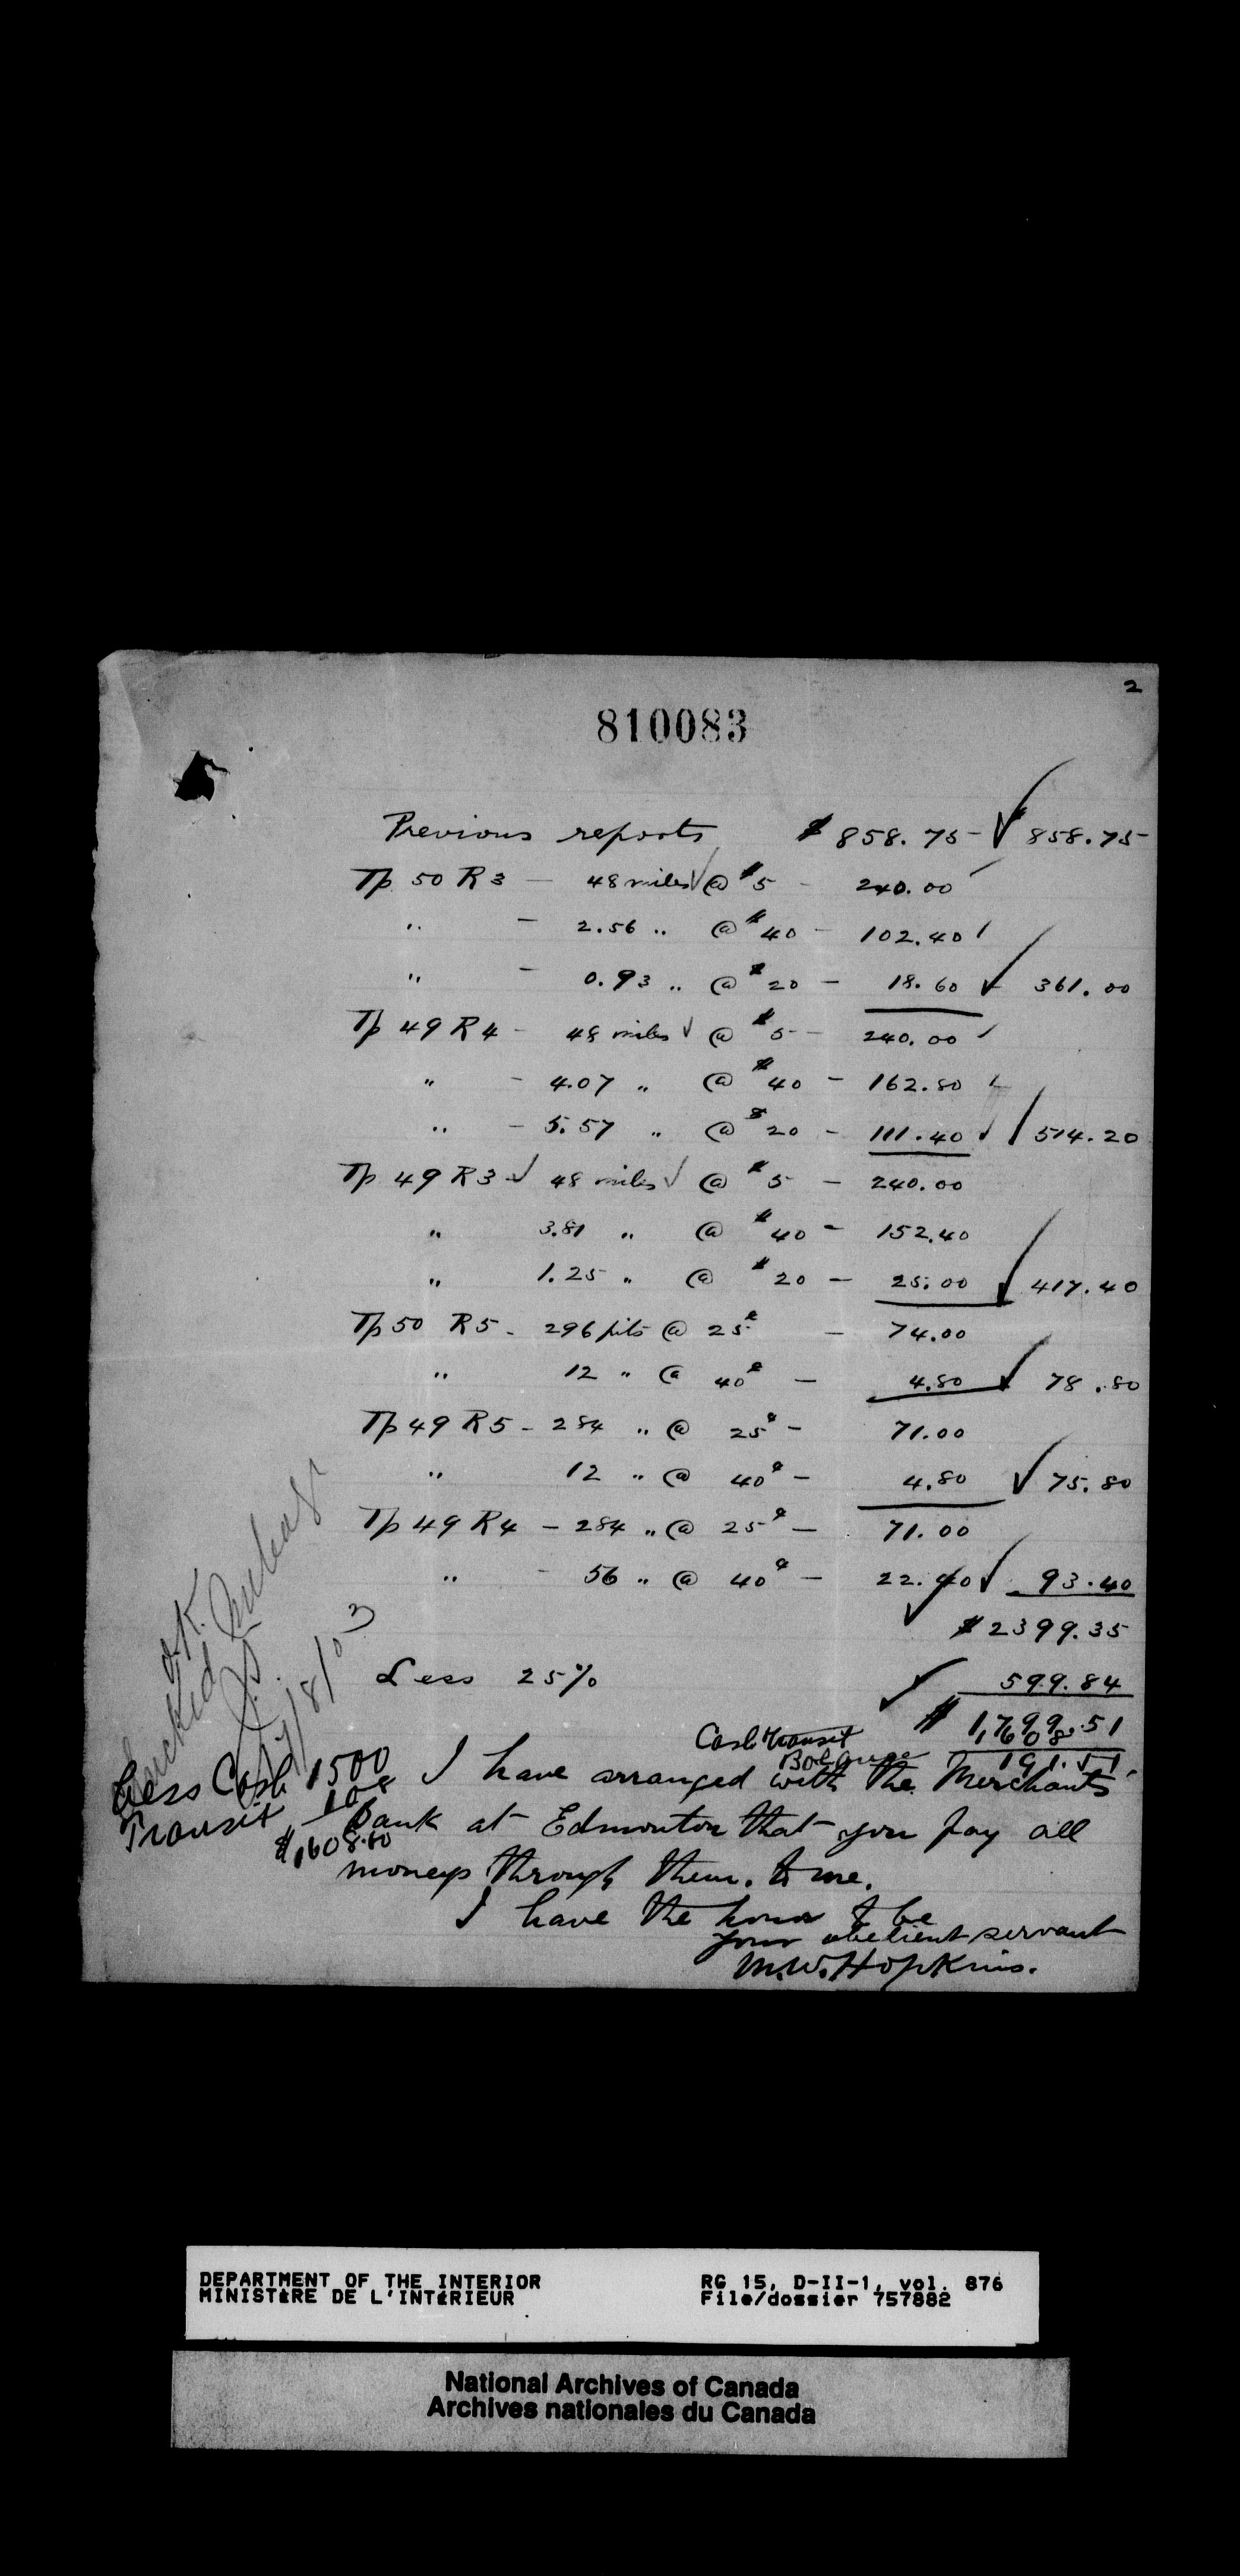 2
810083
Previous reports $858.75 - 858.75
Tp 50 R3 - 48 miles @ $5 - 240.00
" - 2.56 " @ $40 - 102.40
" - 0.93 " @ $20 - 18.60 361.00
Tp 49 R4 - 48 miles @ $5 - 240.00
" - 4.07 " @ $40 - 162.80
" - 5.57 " @ $20 - 111.40 514.20
Tp 49 R3 - 48 miles @ $5 - 240.00
" 3.81 " @ $40 - 152.40
" 1.25 " @ $20 - 25.00 417.40
Tp 50 R5 - 296 pits @ 25¢ - 74.00
" 12 " @ 40¢ - 4.80 78.80
Tp 49 R5 - 284 " @ 25¢ - 71.00
" 12 " @ 40¢ - 4.80 75.80
Tp 49 R4 - 284 " @ 25¢ - 71.00
" - 56 " @ 40¢ - 22.40 93.40
$2399.35
Less 25% 599.84
$1,799.51
Cash transit 1608.
Balance 191.51
O.K.
Checked
Less Cash 1500
Transit 108
$1608.00
I have arranged with the Merchants
Bank at Edmonton that you pay all
moneys through them. to me.
I have the honor to be
your obedient servant
M.W. Hopkins.
DEPARTMENT OF THE INTERIOR RG 15, D-II-1, vol. 876
MINISTÈRE DE L'INTÉRIEUR File/dossier 757882
National Archives of Canada
Archives nationales du Canada